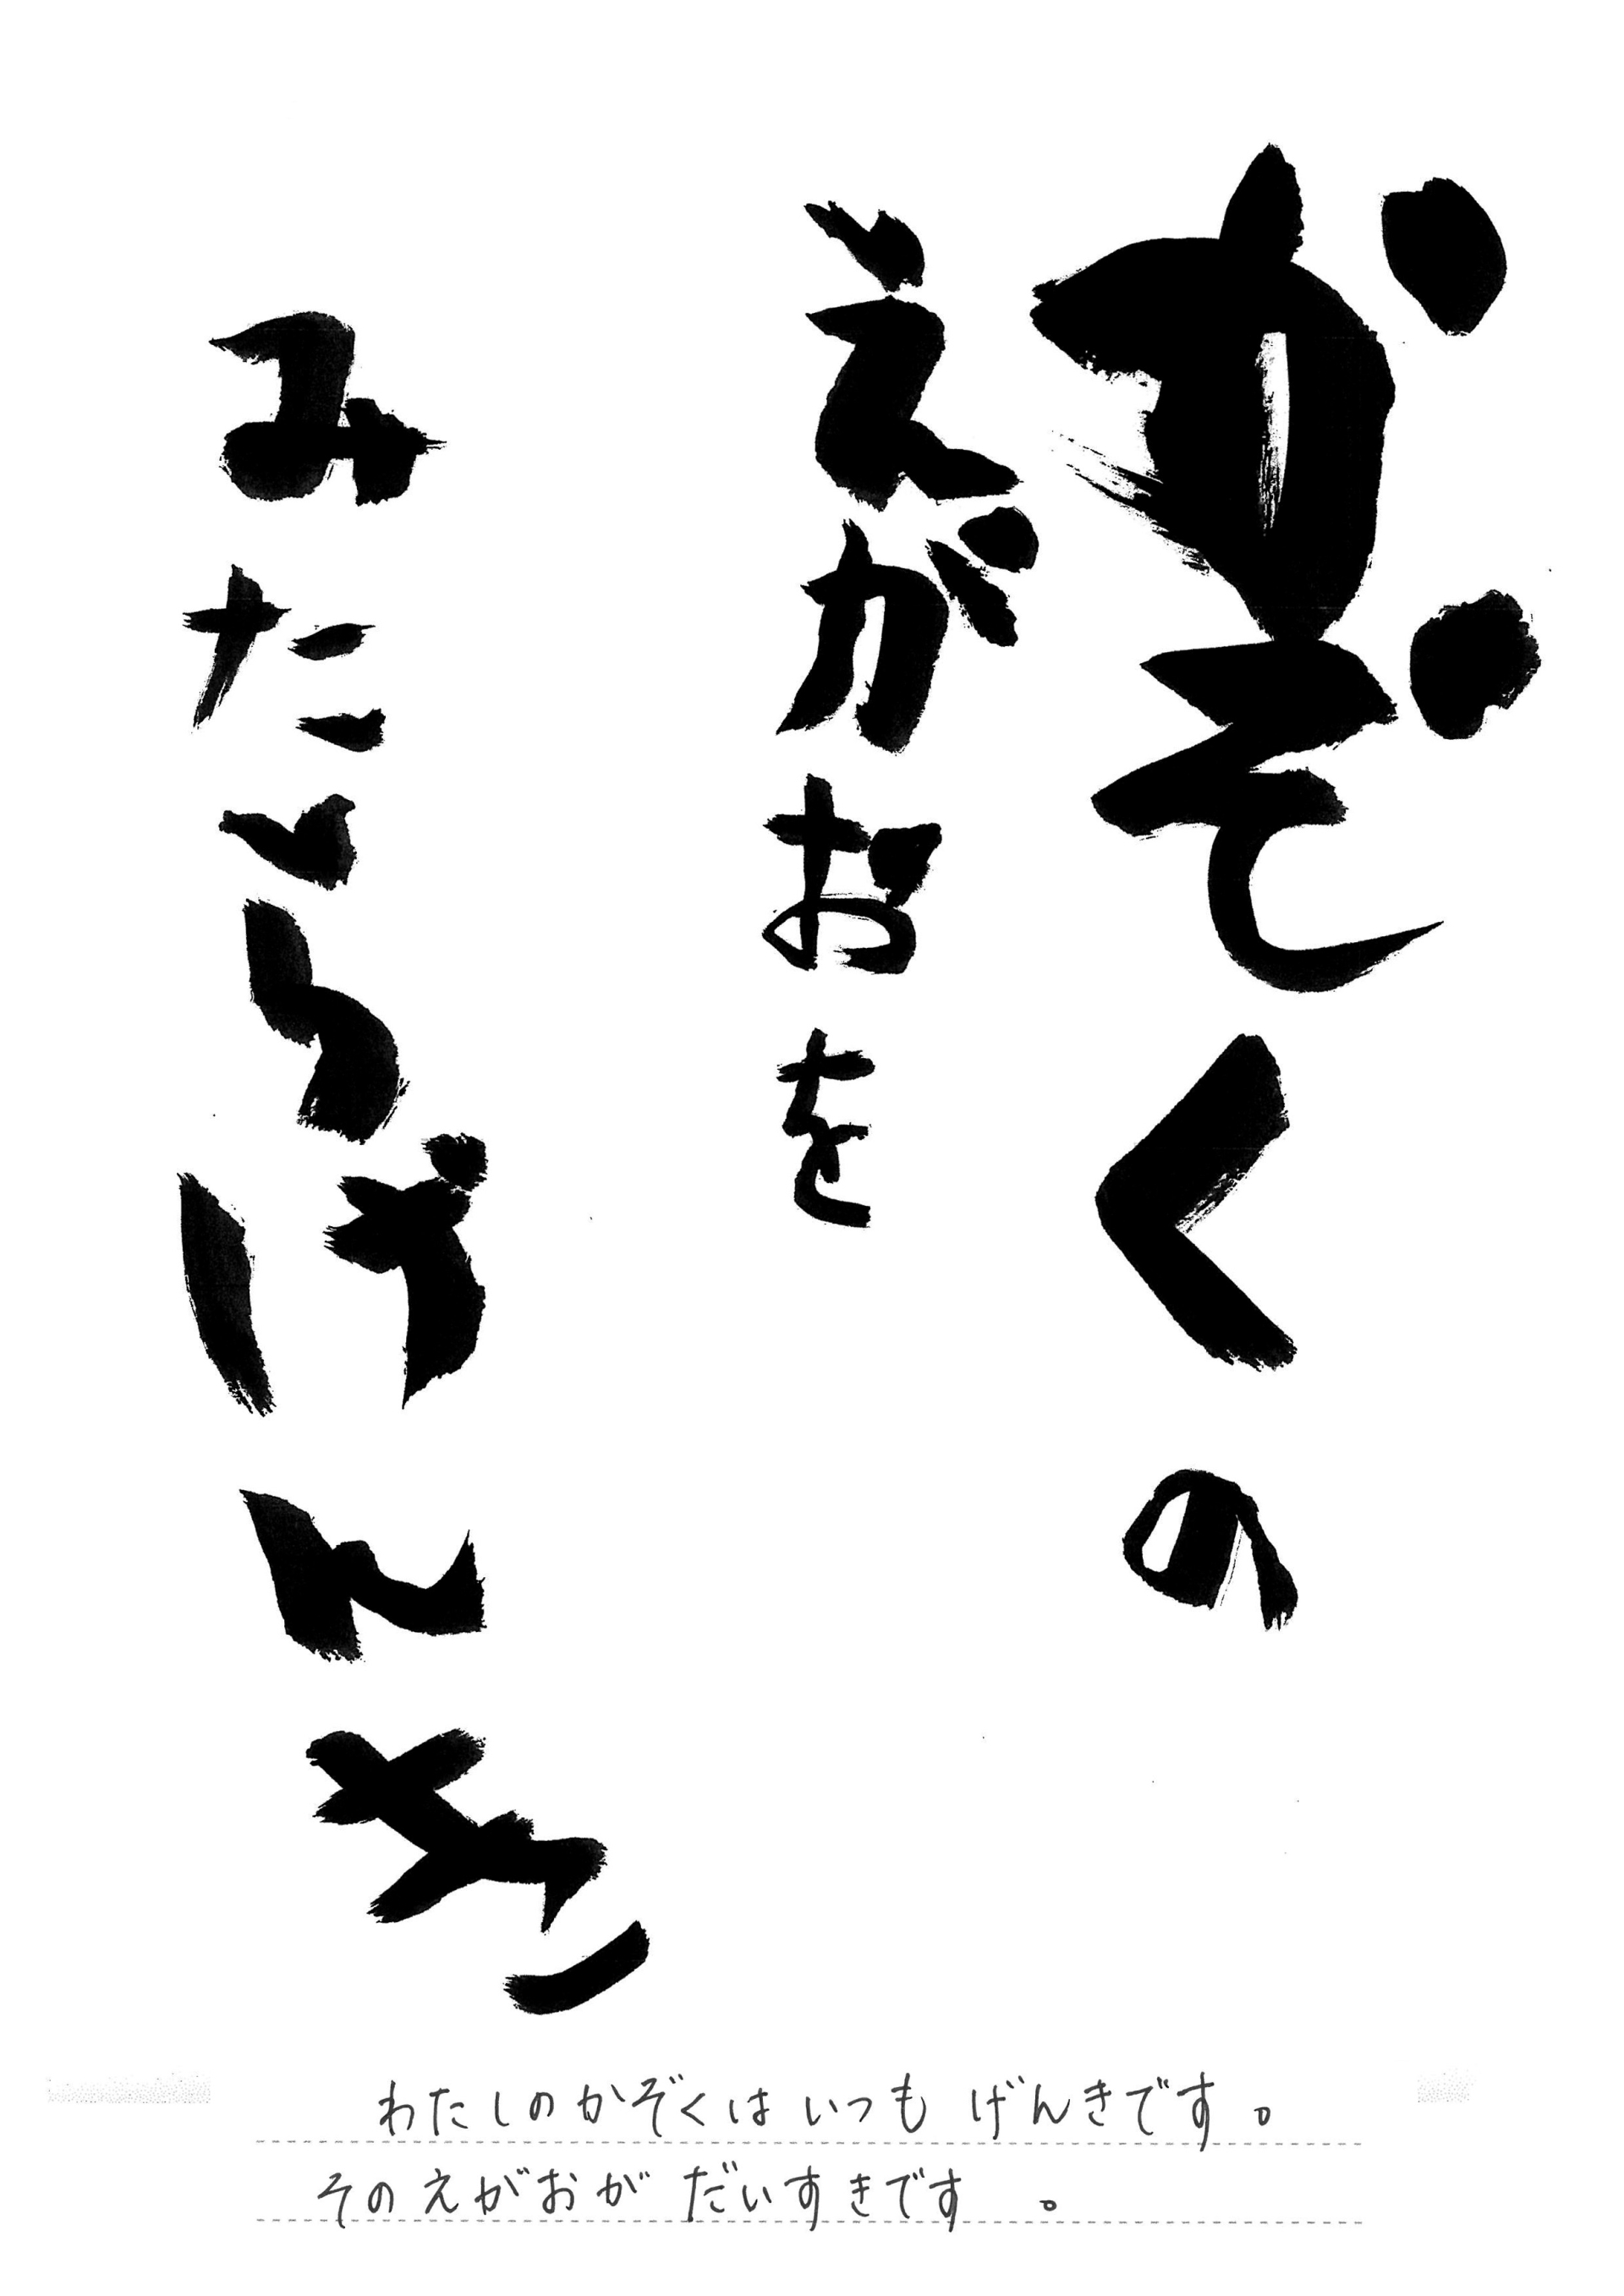 かぞくの
えがおを
みたらげんき
わたしのかぞくは いつも げんきです。
そのえがおが だいすきです 。